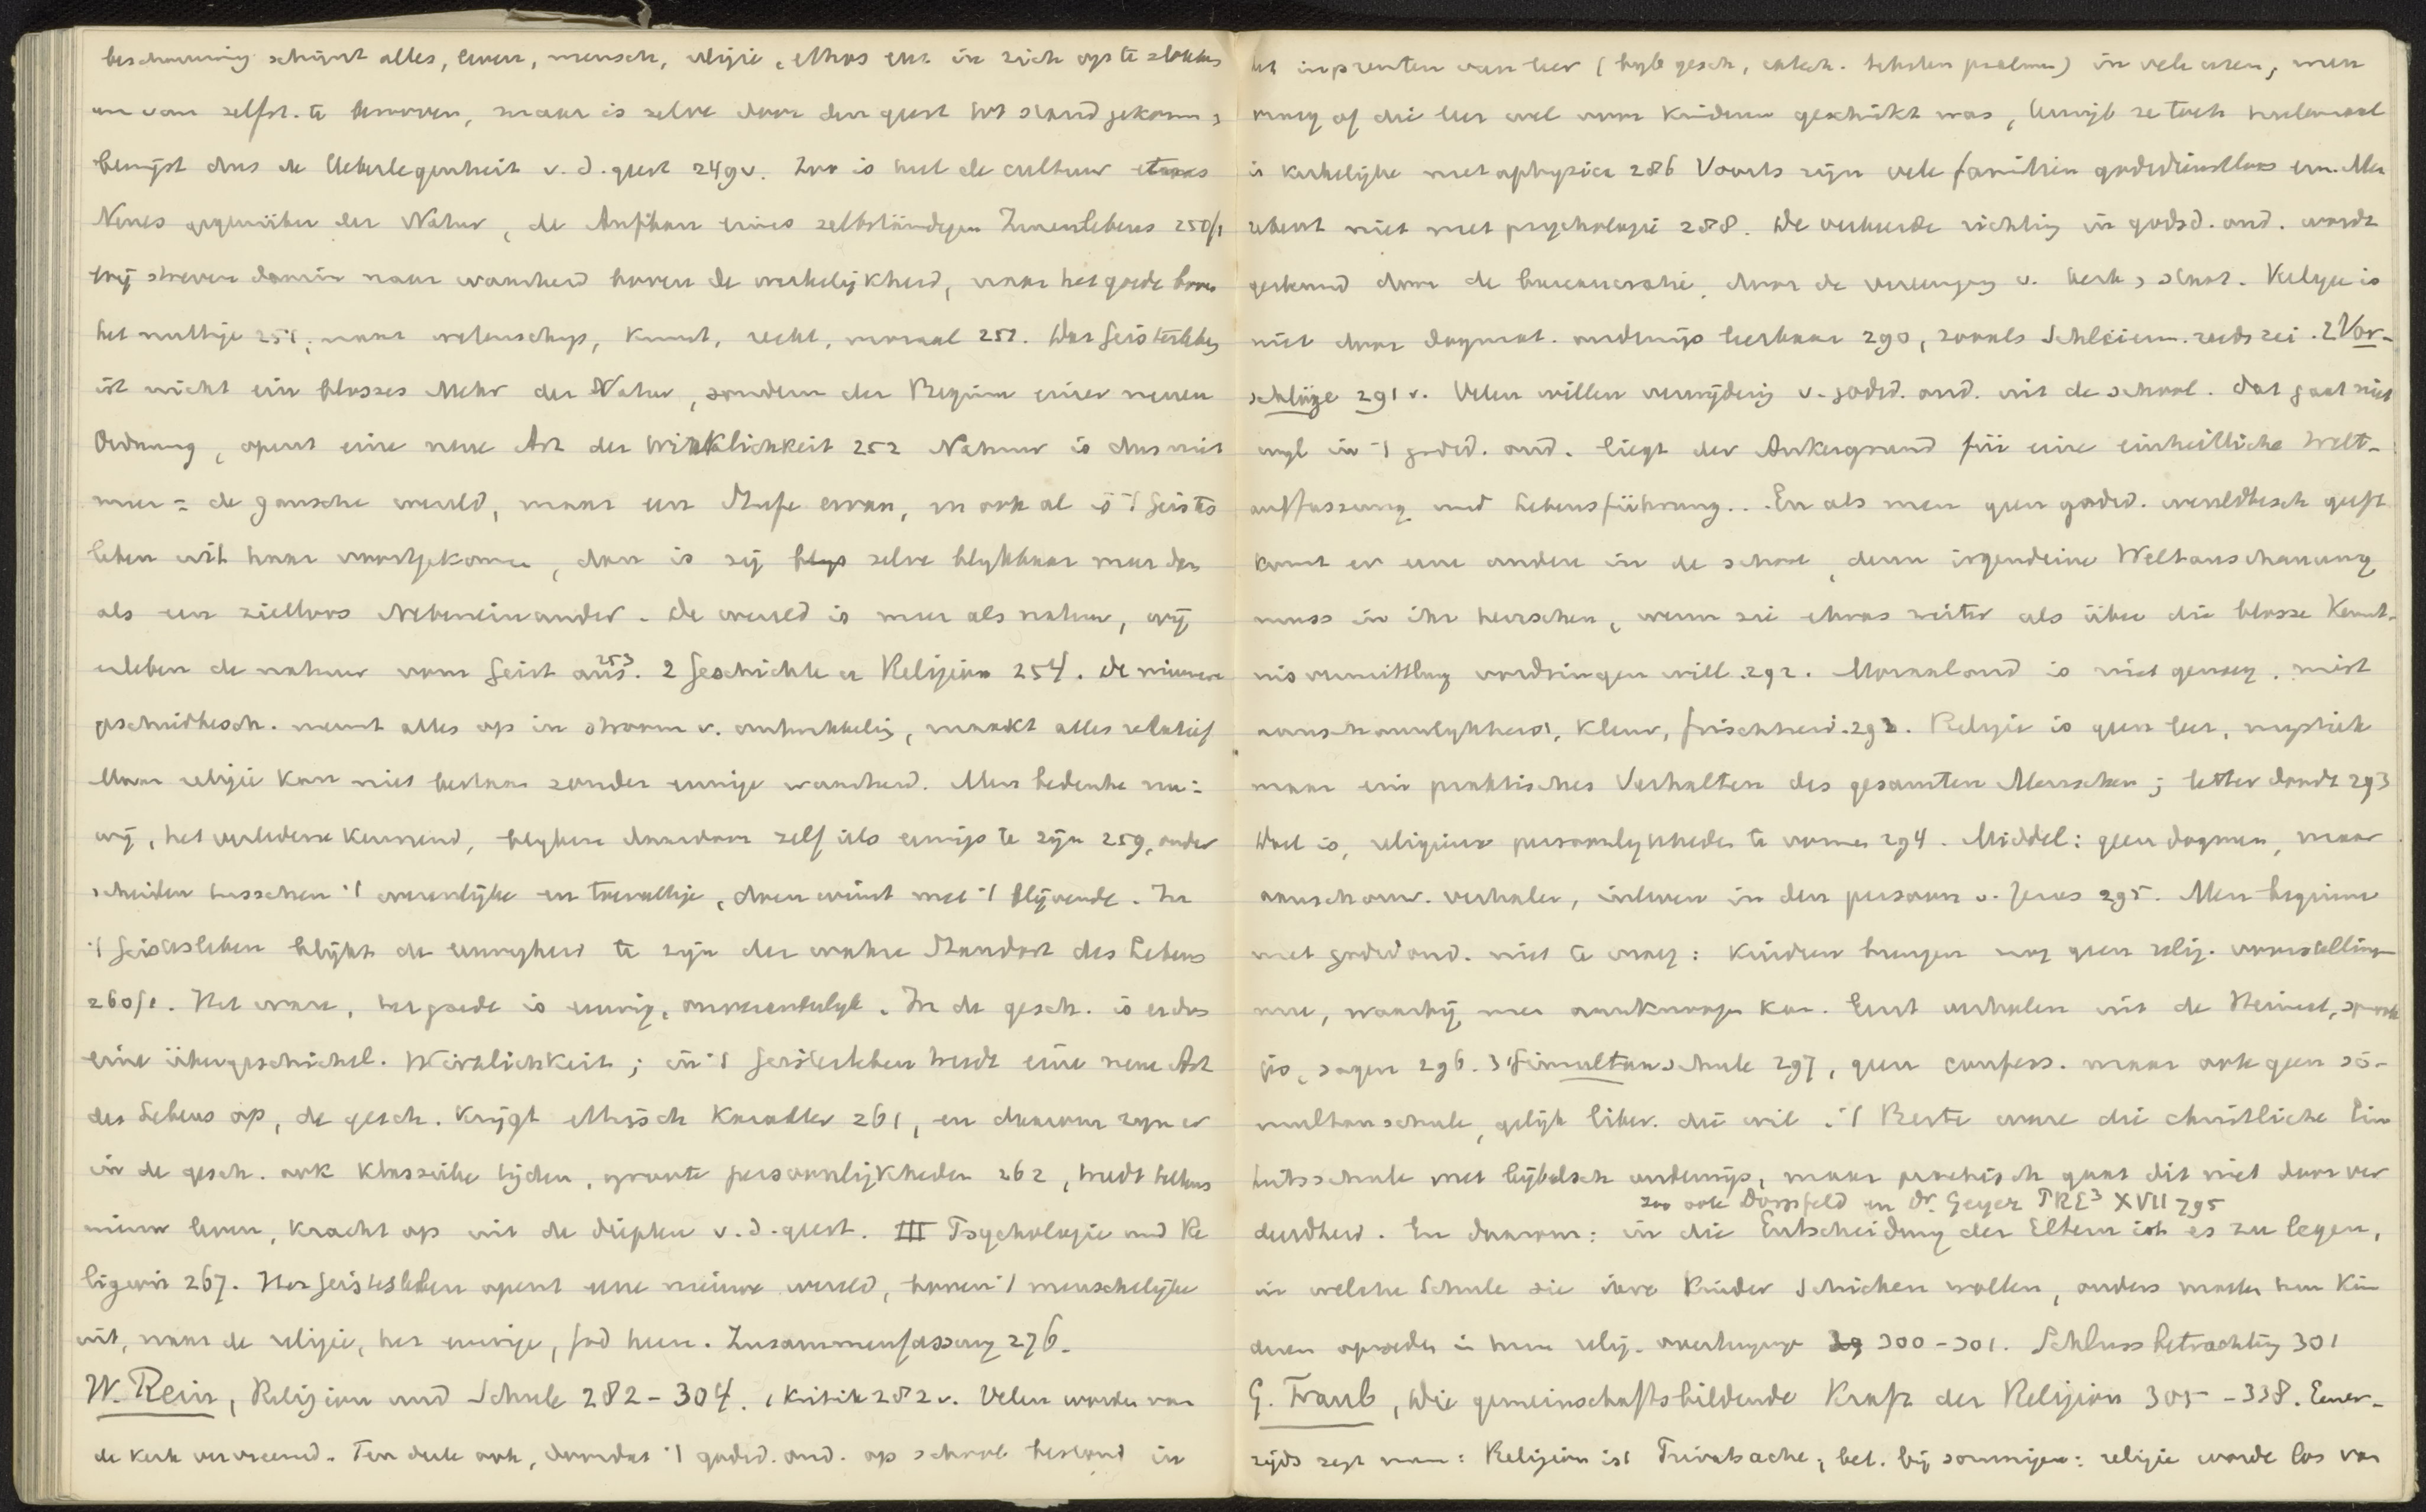 beschouwing schijnt alles, leven, mensch, religie, ethos enz in zich op te slokken
en van zelfst. te berooven, maar is zelve door den geest tot stand gekomen,
bewijst dus de Ueberlegenheit v. d. geest 249v. Zoo is met de cultuur etwas
Neues gegenüber der Natur, de Aufbau eines selbständigen Innenlebens 250/1
wij streven daarin naar waarheid boven de werkelijkheid, naar het goede boven
het nuttige 251, naar wetenschap, kunst, recht, moraal 251. Das Geistesleben
ist nicht ein blosses Mehr der Natur, sondern der Beginn einer neuen
Ordnung, opent eine neue Art der Wirklichkeit 252 Natuur is dus niet
meer = de gansche wereld, maar een Stufe ervan, en ook al is 't Geistes
leben uit haar voortgekomen, dan is zij zelve blijkbaar meer dan
als een zielloos Nebeneinander. De wereld is meer als natuur, wij
erleben de natuur vom Geist aus. 253 2 Geschichte en Religion 254. De nieuwere
geschiedbesch. neemt alles op in stroom v. ontwikkeling, maakt alles relatief
Maar religie kan niet bestaan zonder eeuwige waarheid. Men bedenke nu:
wij, het verledene kennend, blijken daardoor zelf iets eeuwigs te zijn 259, onder
scheiden tusschen 't wezenlijke en toevallige, doen winst met 't blijvende. In
't Geistesleben blijkt de eeuwigheid te zijn der wahre Standort des Lebens
260/1. Het ware, het goede is eeuwig, onveranderlijk. In de gesch. is er dus
eine übergeschichtl. Wirklichkeit; in 't Geistesleben treedt eine neue Art
des Lebens op, de gesch. krijgt ethisch karakter 261, en daarom zijn er
in de gesch. ook klassieke tijden, groote persoonlijkheden 262, treedt telkens
nieuw leven, kracht op uit de diepten v. d. geest. III Psychologie und Re
ligion 267. Het Geistesleben opent eene nieuwe wereld, boven 't menschelijke
uit, naar de religie, het eeuwige, God heen. Zusammenfassung 276.
W. Rein, Religion und Schule 282-304. 1 Kritik 282v. Velen worden van
de kerk vervreemd. Ten deele ook, doordat 't godsd. ond. op school bestond in
het inprenten van leer (bijb gesch, catech. teksten psalmen) in vele uren, men
vroeg of die leer wel voor kinderen geschikt was, terwijl ze toch heelemaal
is kerkelijke metaphysica 286 Voorts zijn vele familien godsdienstloos enz. Men
rekent niet met psychologie 288. De verkeerde richting in godsd. ond. wordt
gesteund door de bureaucratie, door de vereeniging v. kerk en staat. Religie is
niet door dogmat. onderwijs leerbaar 290, zooals Schleierm. reeds zei. 2 Vor-
schläge 291v. Velen willen verwijdering v. godsd. ond. uit de school. Dat gaat niet
wijl in 't godsd. ond. liegt der Ankergrund für eine einheitliche Welt-
auffassung und Lebensführung... En als men geen godsd. wereldbesch geeft
komt er eene andere in de school, denn irgendeine Weltanschauung
muss in ihr herrschen, wenn sie etwas weiter als über die blosse Kennt-
nisvermittlung vordringen will 292. Moraalond is niet genoeg, mist
aanschouwelijkheid, kleur, frischheid. 293. Religie is geen leer, mystiek
maar ein praktisches Verhalten des gesamten Menschen; letter doodt 293
Doel is, religieuze persoonlijkheden te vormen 294. Middel: geen dogmen, maar
aanschouw. verhalen, inleven in den persoon v. Jezus 295. Men beginne
met godsd ond. niet te vroeg: kinderen brengen nog geen relig. voorstellingen
mee, waarbij men aanknoopen kan. Eerst verhalen uit de Heimat, sprook
jes, sagen 296. 3 Simultanschule 297, geen confess. maar ook geen si-
multanschule, gelijk liber. die wil. 't Beste ware die christliche Ein
heitsschule met bijbelsch onderwijs, maar practisch gaat dit niet door ver
zoo ook Dörpfeld en Dr. Geyer PRE³ XVII 795
deeldheid. En daarom: in die Entscheidung der Eltern ist es zu legen,
in welche Schule sie ihre Kinder schicken wollen, anders moeten hun kin
deren opvoeden in hun relig. overtuiging 300-301. Schluss betrachting 301
G. Traub, Die gemeinschaftsbildende Kraft der Religion 305-338. Eener-
zijds zegt men: Religion ist Privatsache, bet. bij sommigen: religie worde los van